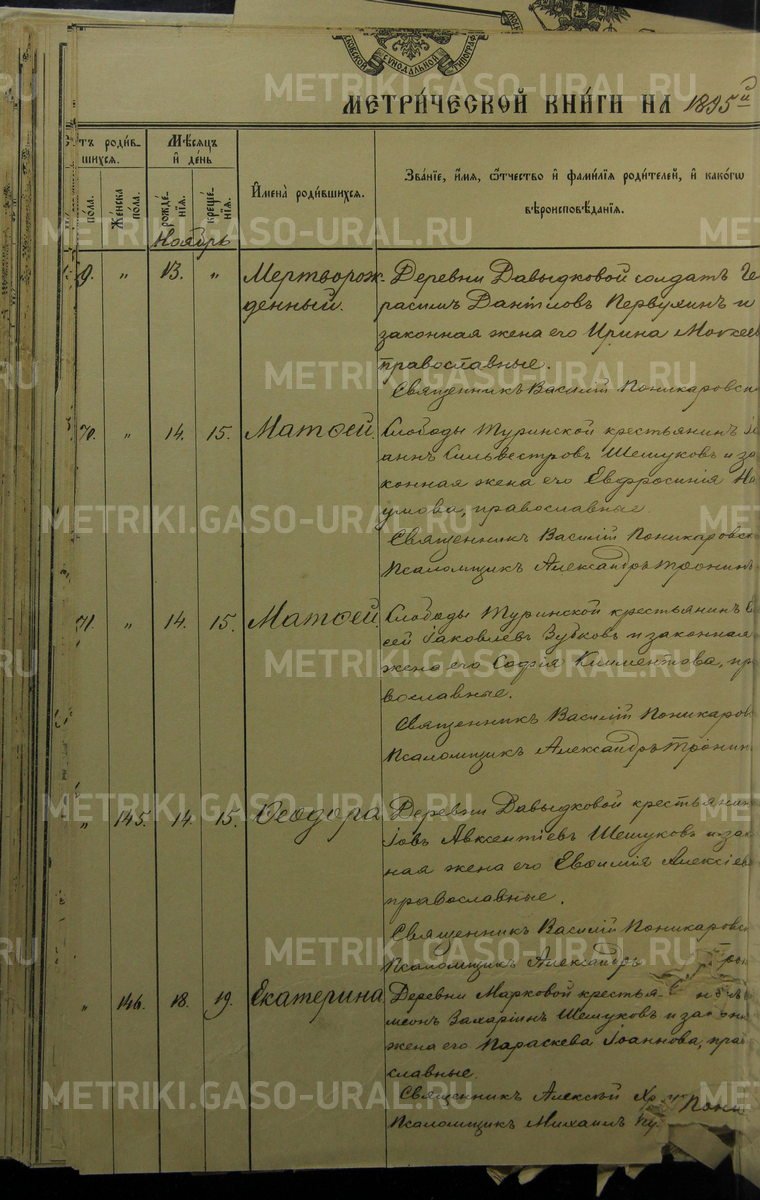 МОСКОВСКОЙ СѴНОДАЛЬНОЙ ТИПОГРАФ
METRIKI.GASO-URAL.RU
МЕТРИ́ЧЕСКОЙ КНИ́ГИ НА 1895й
тъ роди́в-
шихся.
Мѣ́сяцъ
и де́нь
Имена̀ роди́вшихся.
Зва́нїе, и́мя, ѻ́тчество и фами́лїя роди́телей, и како́гѡ
вѣроисповѣ́данїя.
по́ла.
Же́нска
по́ла.
рожде́-
нїя.
креще́-
нїя.
Ноябрь
9. " 13. " Мертворож-
денный.
Деревни Давыдковой солдатъ Ге
расимъ Данїиловъ Первухинъ и
законная жена его Ирина Моккеев
православные.
Священникъ Василїй Поникаровск
70. " 14. 15. Матѳей.
Слободы Туринской крестьянинъ Іо
аннъ Сильвестровъ Шешуковъ и за
конная жена его Евфросинія На
умова, православные.
Священникъ Василій Поникаровск
Псаломщикъ Александръ Тронинъ
71. " 14. 15. Матѳей.
Слободы Туринской крестьянинъ
сей Іаковлевъ Зубковъ и законная
жена его Софія Климентова, пра
вославные.
Священникъ Василій Поникаров
Псаломщикъ Александръ Тронин
" 145. 14. 15. Ѳеодора
Деревни Давыдковой крестьянин
Іовъ Авксентіевъ Шешуковъ и зак
ная жена его Евѳимія Алексіев
православные.
Священникъ Василій Поникаровс
Псаломщикъ Александръ Трон
" 146. 18. 19. Екатерина
Деревни Марковой крестья
меонъ Захаріинъ Шешуковъ и зак
жена его Параскева Іоаннова, пра
славные.
Священникъ Алексѣй
Псаломщикъ Михаилъ